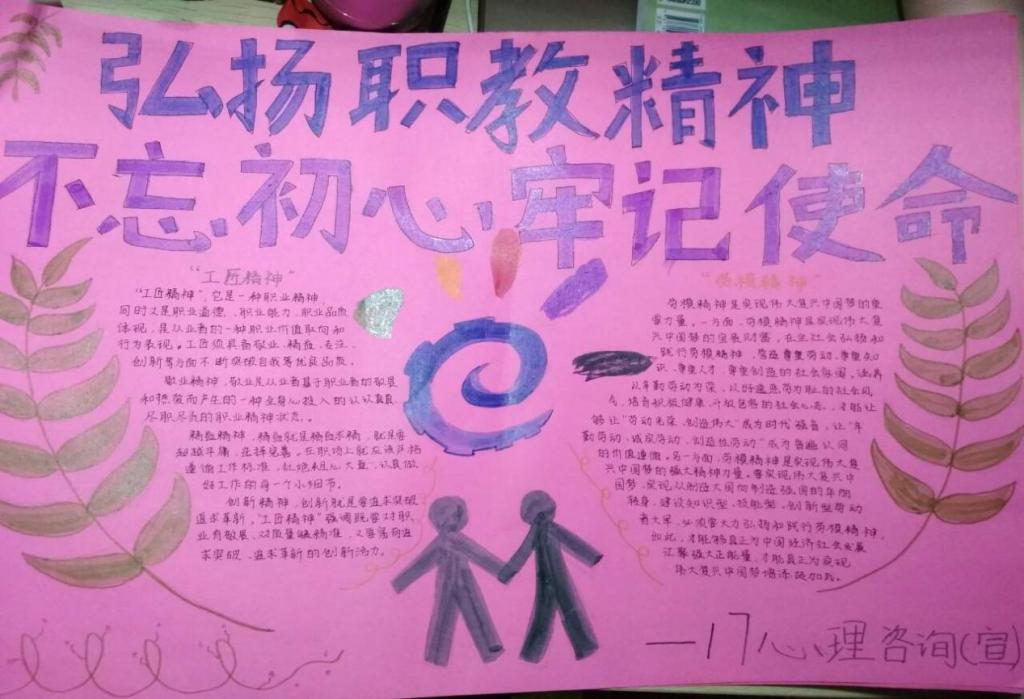 弘扬职教精神
不忘初心牢记使命
"工匠精神"
"工匠精神",它是一种职业精神,
同时又是职业道德、职业能力、职业品质
体现,是从业者的一种职业价值取向和
行为表现。工匠须具备敬业、精益、专注、
创新等方面不断突破自我等优良品质。
敬业精神,敬业是从业者基于职业者的敬畏
和热爱而产生的一种全身心投入的认认真真、
尽职尽责的职业精神状态。
精益精神,精益就是精益求精,就是要
超越平庸,选择完善。在职场上就应该严格
遵循工作标准,杜绝粗心大意,认真做
好工作的每一个小细节。
创新精神,创新就是要追求突破
追求革新。"工匠精神"强调既要对职
业有敬畏、对质量够精准,又要富有追
求突破、追求革新的创新活力。
"劳模精神"
劳模精神是实现伟大复兴中国梦的重
要力量。一方面,劳模精神是实现伟大复
兴中国梦的宝贵财富。在全社会弘扬和
践行劳模精神,营造尊重劳动、尊重知
识、尊重人才、尊重创造的社会氛围,涵养
以辛勤劳动为荣、以好逸恶劳为耻的社会风
气,培育积极健康、开放包容的社会心态,才能让
够让"劳动光荣、创造伟大"成为时代强音,让"辛
勤劳动、诚实劳动、创造性劳动"成为普遍认同
的价值遵循。另一方面,劳模精神是实现伟大复
兴中国梦的强大精神力量。要实现伟大复兴中
国梦,实现从制造大国向制造强国的华丽
转身,建设知识型、技能型、创新型劳动
者大军,必须要大力弘扬和践行劳模精神。
如此,才能够真正为中国经济社会发展
汇聚强大正能量,才能真正为实现
伟大复兴中国梦增添砖加瓦。
一17心理咨询(宣)